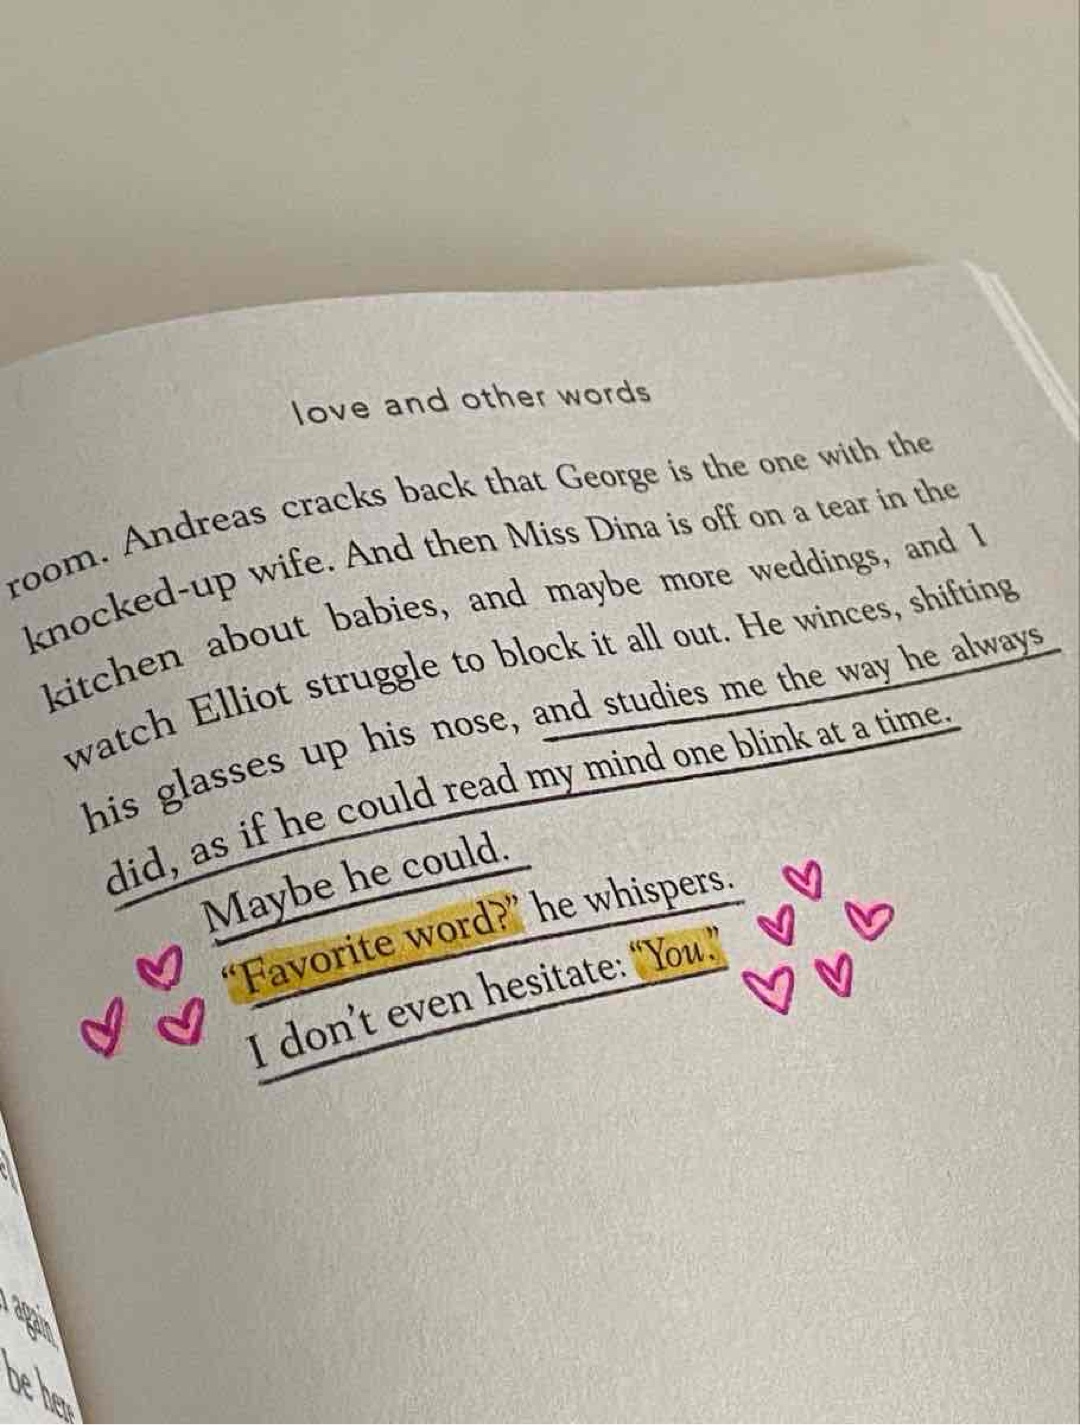 love and other words
room. Andreas cracks back that George is the one with the
knocked-up wife. And then Miss Dina is off on a tear in the
kitchen about babies, and maybe more weddings, and I
watch Elliot struggle to block it all out. He winces, shifting
his glasses up his nose, and studies me the way he always
did, as if he could read my mind one blink at a time.
Maybe he could.
“Favorite word?” he whispers.
I don’t even hesitate: “You.”
again.
be here